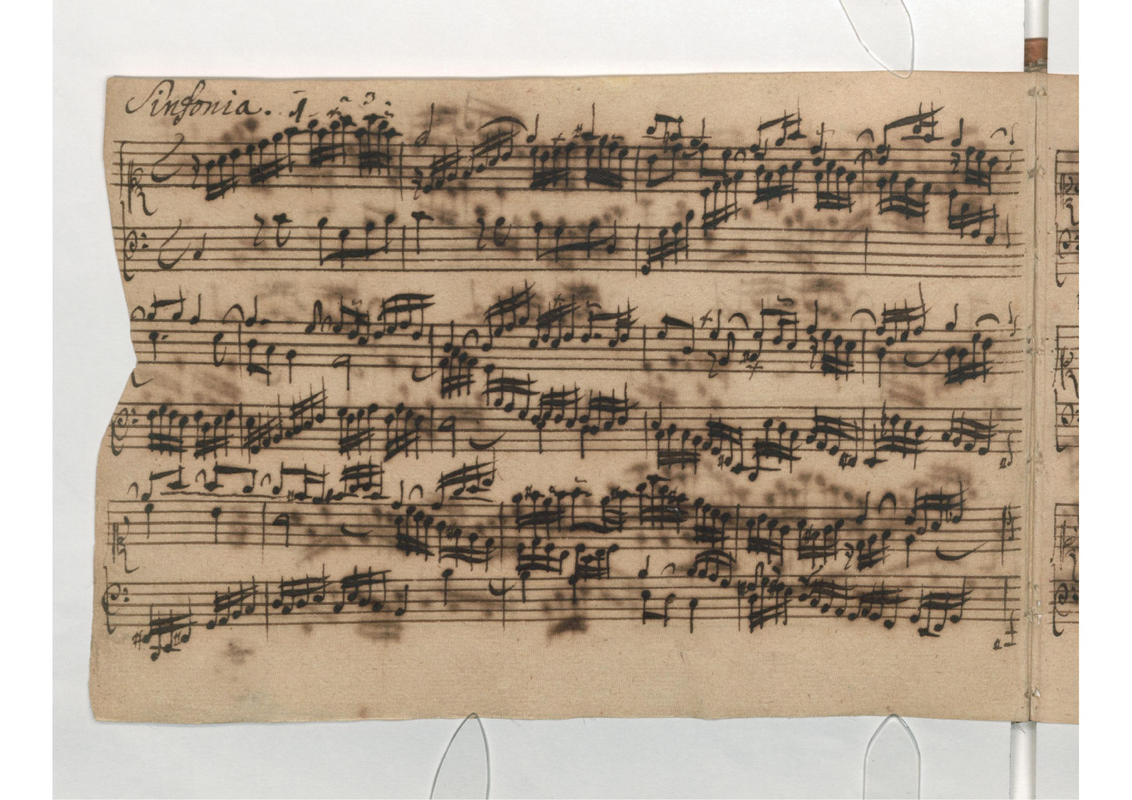 Sinfonia. 1.